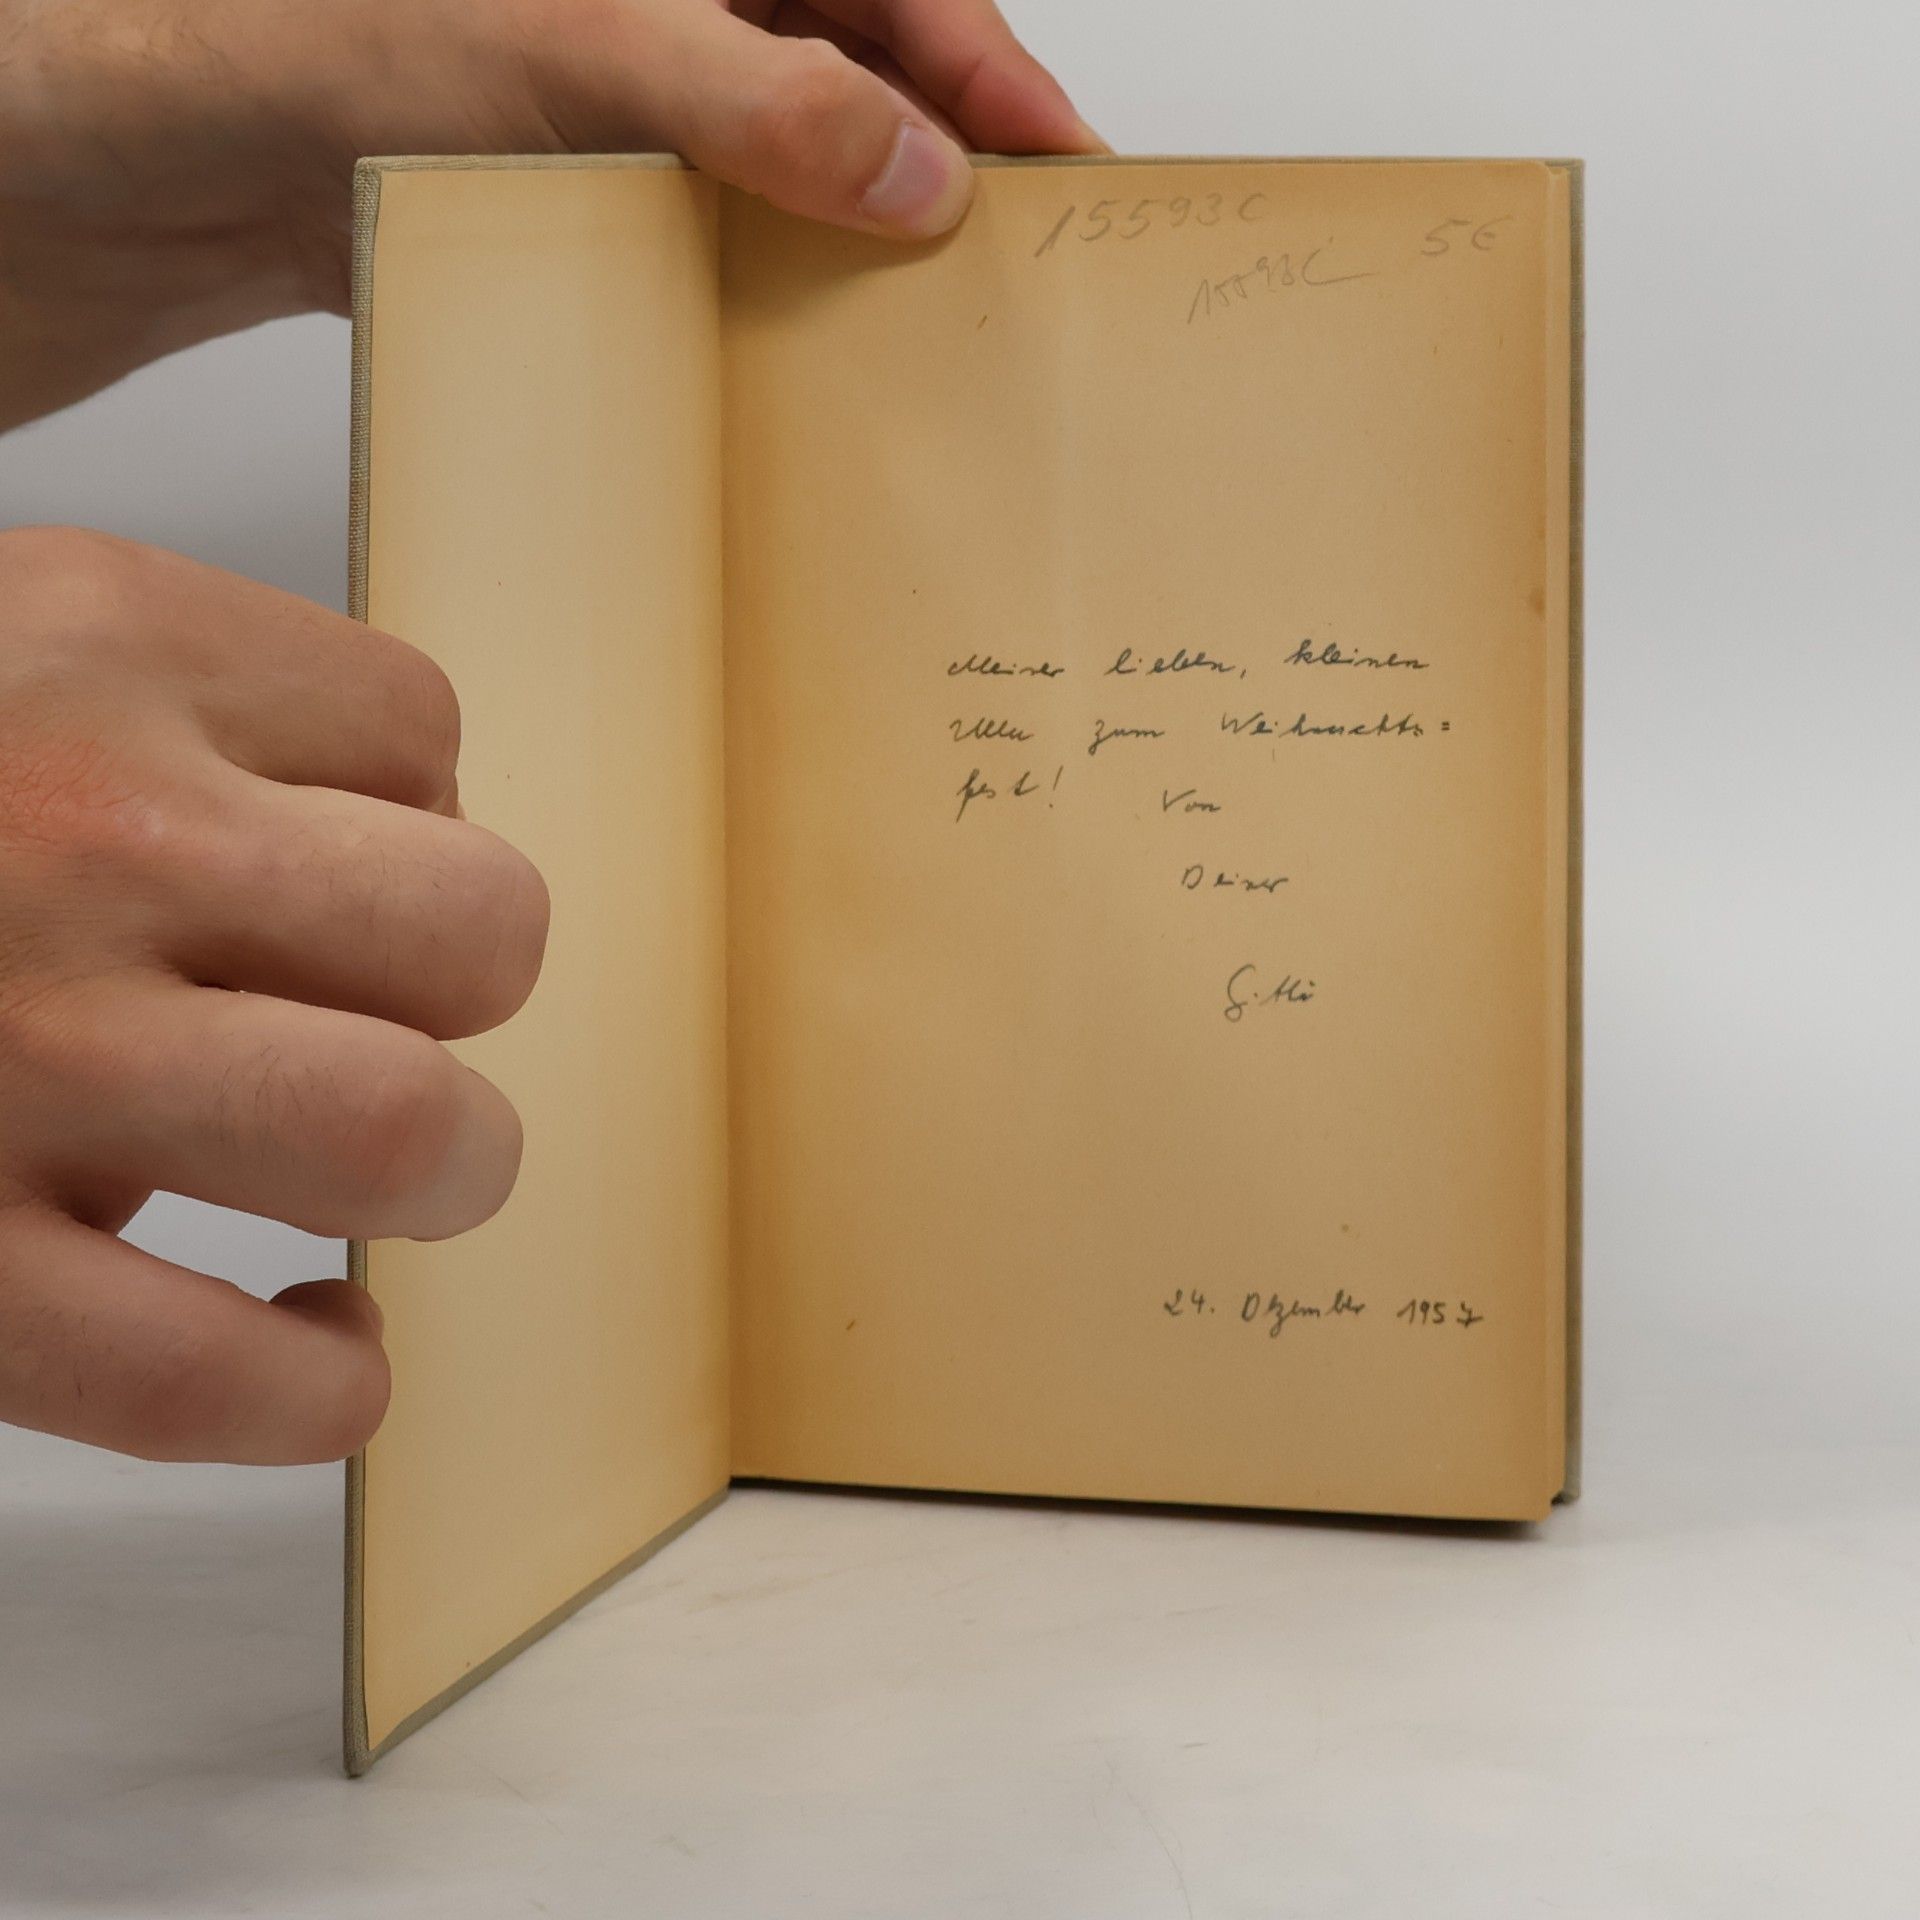 15593C
5€
15593C
Meiner lieben, kleinen
Ulla zum Weihnachts=
fest! Von
Deiner
Gitti
24. Dezember 1957